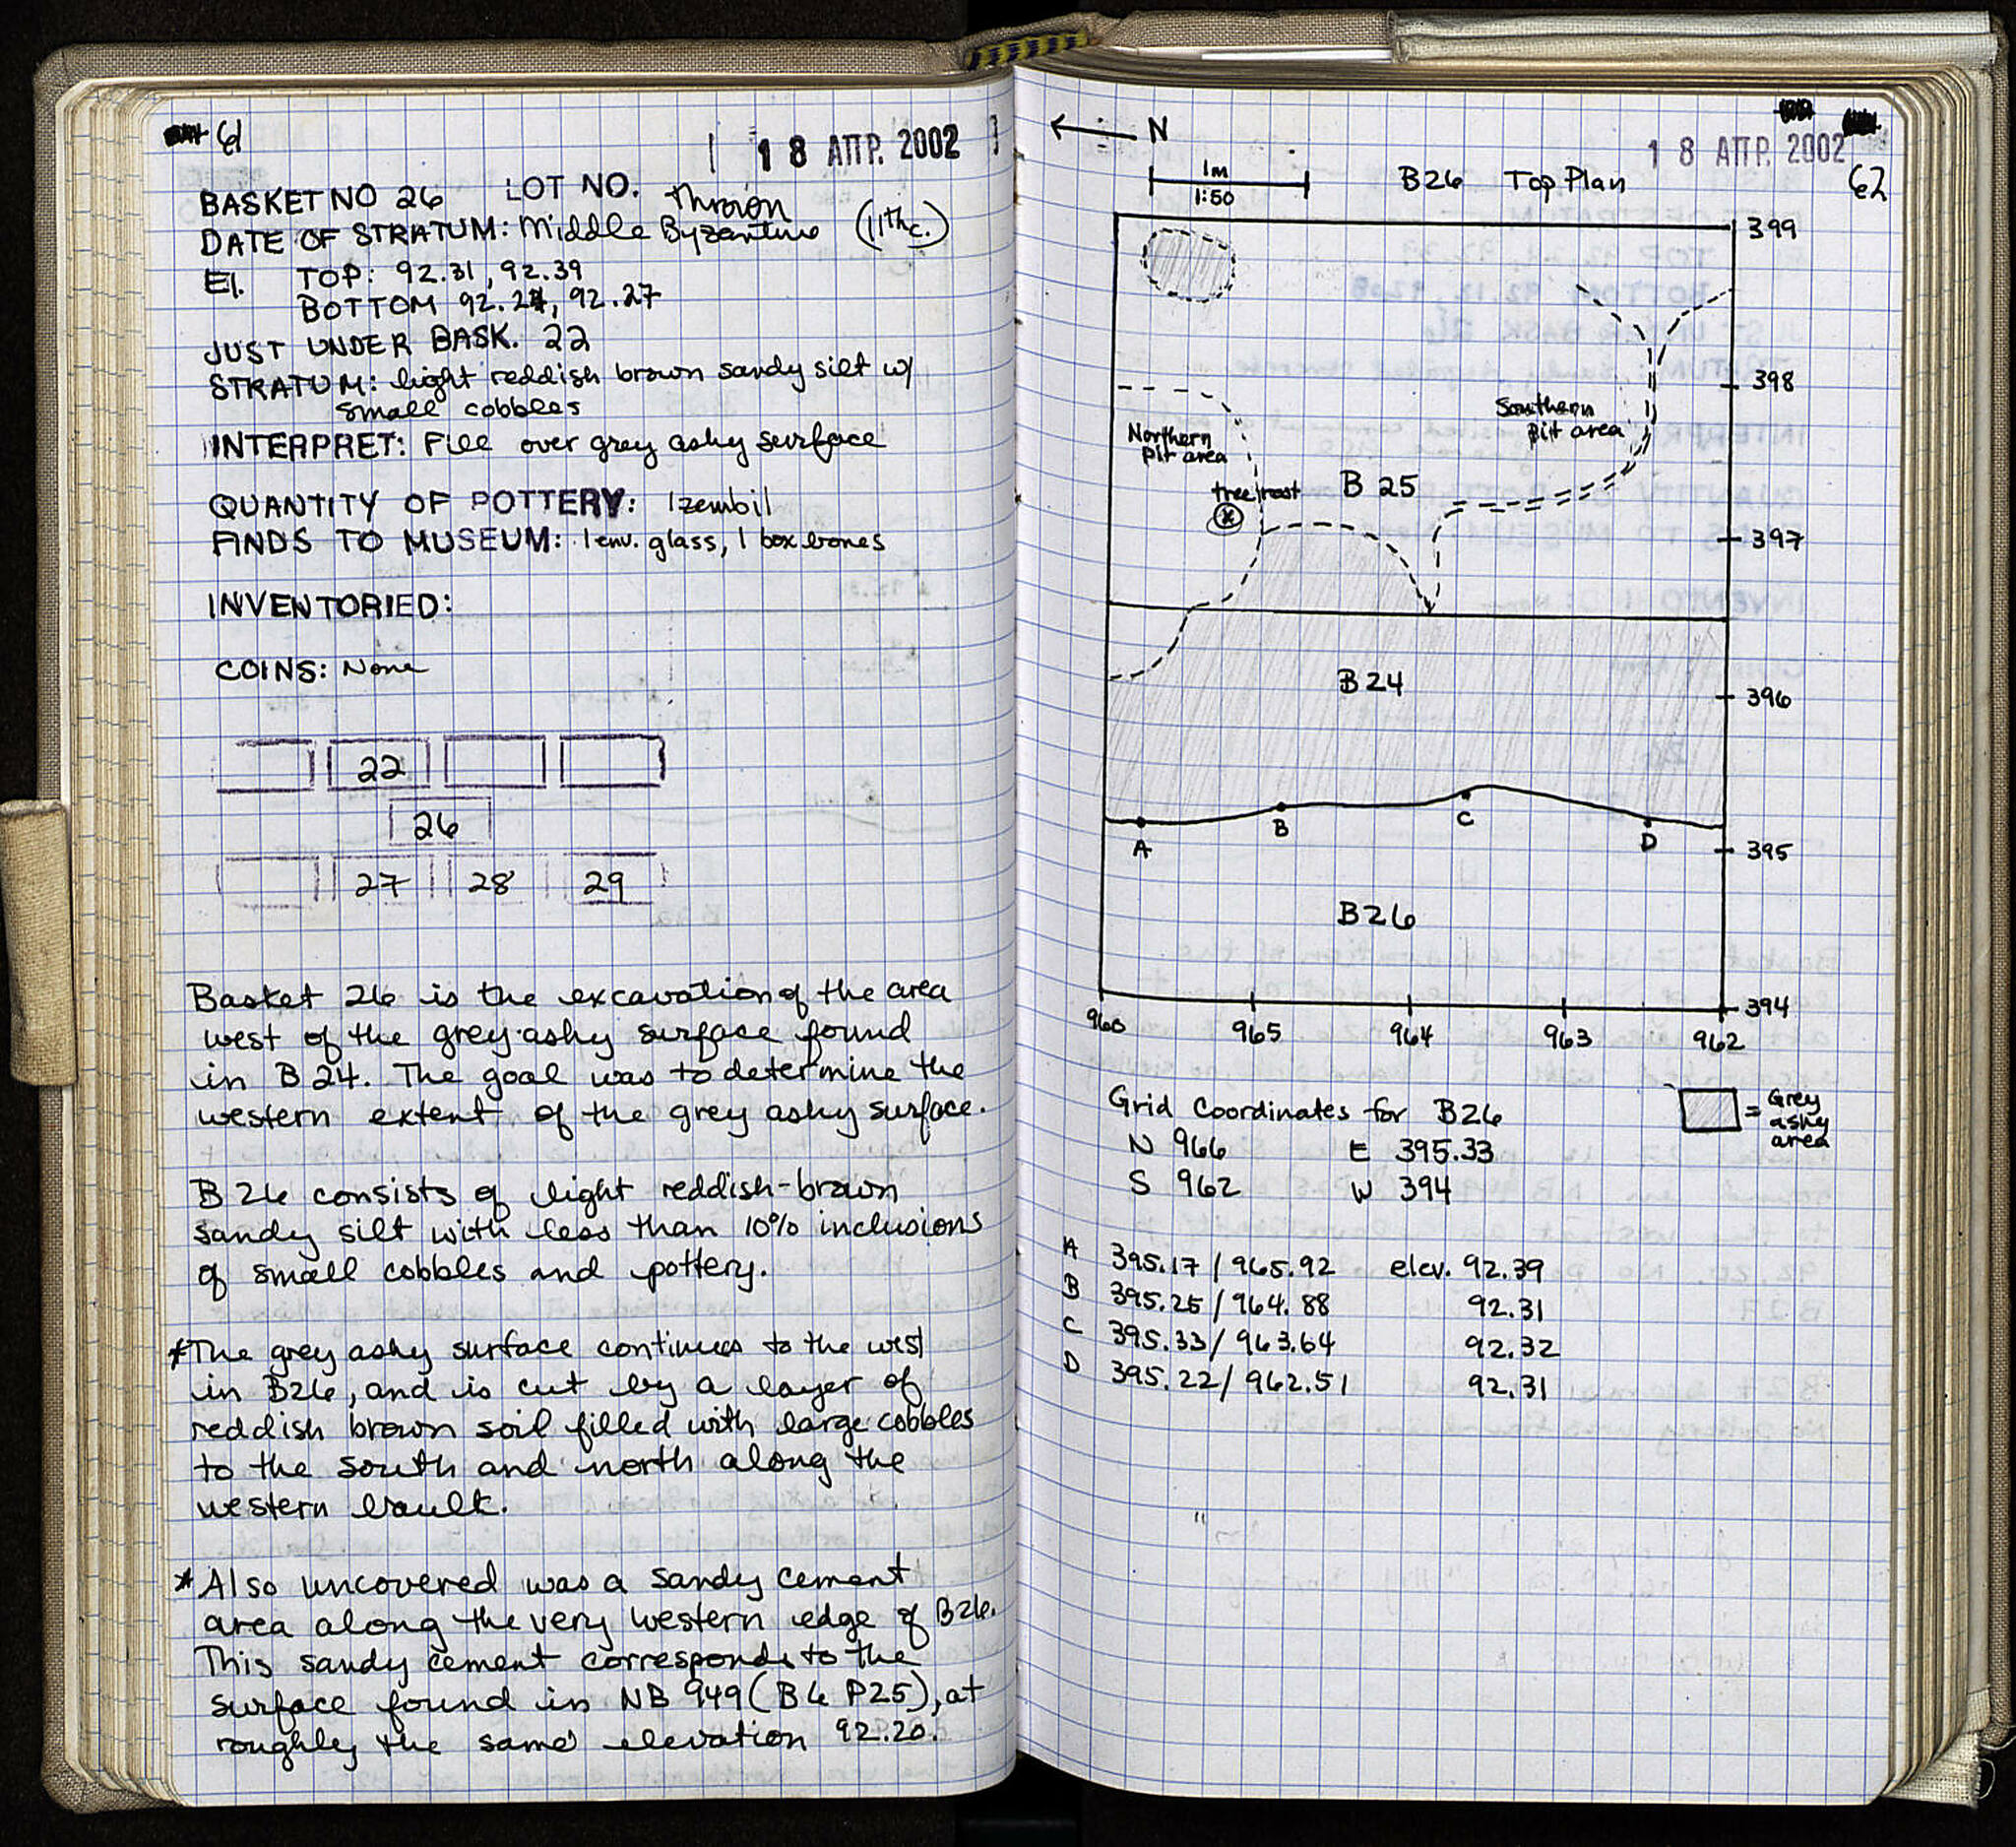 61
18 ΑΠΡ. 2002
BASKET NO 26 LOT NO.
DATE OF STRATUM: Middle Byzantine (11th c.)
El. TOP: 92.31, 92.39
BOTTOM 92.24, 92.27
JUST UNDER BASK. 22
STRATUM: light reddish brown sandy silt w/
small cobbles
INTERPRET: Fill over grey ashy surface
QUANTITY OF POTTERY: 1 zembil
FINDS TO MUSEUM: 1 env. glass, 1 box bones
INVENTORIED:
COINS: None
22
26
27 28 29
Basket 26 is the excavation of the area
west of the grey ashy surface found
in B 24. The goal was to determine the
western extent of the grey ashy surface.
B 26 consists of light reddish-brown
sandy silt with less than 10% inclusions
of small cobbles and pottery.
*The grey ashy surface continues to the west
in B26, and is cut by a layer of
reddish brown soil filled with large cobbles
to the south and north along the
western vault.
*Also uncovered was a sandy cement
area along the very western edge of B26.
This sandy cement corresponds to the
surface found in NB 949 (B6 P25), at
roughly the same elevation 92.20.
N
18 ΑΠΡ. 2002
62
1m
1:50
B26 Top Plan
399
398
Southern
pit area
Northern
pit area
tree root
B 25
397
B24
396
A
B
C
D
395
B26
394
960
965
964
963
962
Grid Coordinates for B26
N 966 E 395.33
S 962 W 394
= Grey
ashy
area
A 395.17 / 965.92 elev. 92.39
B 395.25 / 964.88 92.31
C 395.33 / 963.64 92.32
D 395.22 / 962.51 92.31